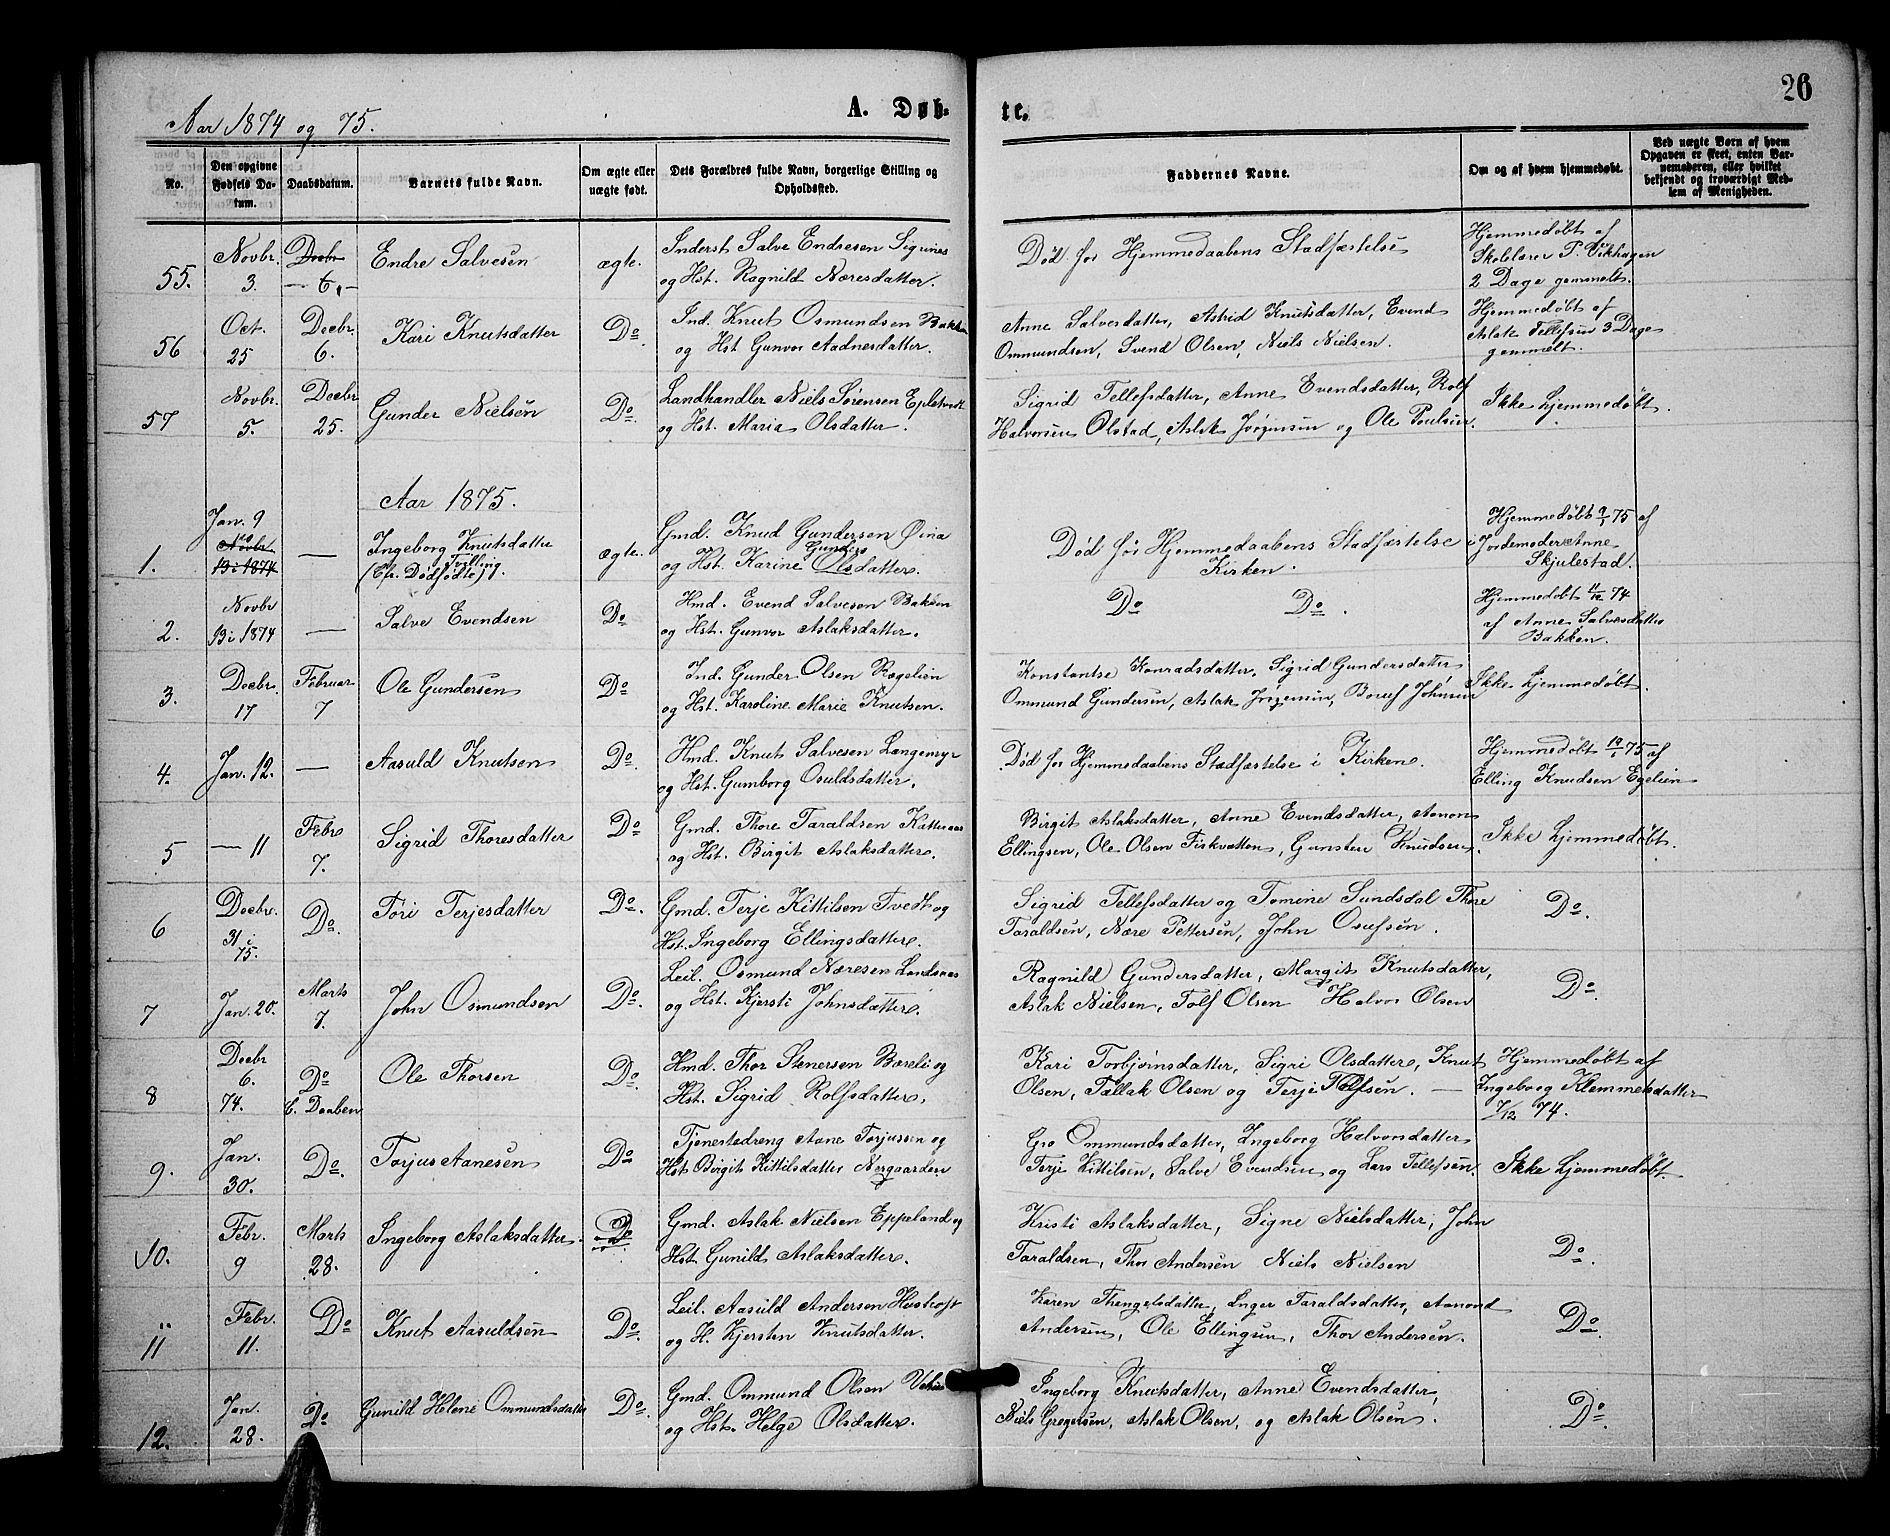 26
Aar 1874 og 75.
A. Døb-
te.
No.
Den opgivne Fødsels Da-tum.
Daabsdatum.
Barnets fulde Navn.
Om ægte eller uægte født.
Dets Forældres fulde Navn, borgerlige Stilling og Opholdssted.
Faddernes Navne.
Om og af hvem hjemmedøbt.
Ved uægte Børn af hvem Opgaven er skeet, enten Bar-nemoderen, eller hvilket bekjendt og troværdigt Med-lem af Menigheden.
55.
Novbr. 3.
Decbr 6.
Endre Salvesen
ægte.
Inderst Salve Endresen Sigunes
og Hst. Ragnild Næresdatter.
Død før Hjemmedaabens Stadfæstelse
Hjemmedøbt af
Skolelærer P. Vikhagen
2 Dage gammelt.
56
Oct. 25
Decbr. 6.
Kari Knutsdatter
Do
Ind. Knut Osmundsen Bakken
og Hst Gunvor Aadnesdatter.
Anne Salvesdatter, Astrid Knutsdatter, Evend
Ommundsen, Svend Olsen, Niels Nielsen.
Hjemmedøbt af
Aslak Tellefsen 3 Dage
gammelt.
57
Novbr. 5.
Decbr 25.
Gunder Nielsen
Do
Landhandler Niels Sørensen Epletvedt
og Hst. Maria Olsdatter.
Sigrid Tellefsdatter, Anne Evendsdatter, Rolf
Halvorsen Olstad, Aslak Jørgensen og Ole Poulsen.
Ikke hjemmedøbt.
Aar 1875.
1.
Jan. 9
Novbr 13 i 1874
—
Ingeborg Knutsdatter
Tvilling
(Cfr. Dødfødte) 1.
ægte.
Gmd. Knud Gundersen Øina
Gunders
og Hst. Karine Olsdatter.
Død før Hjemmedaabens Stadfæstelse i
Kirken.
Hjemmedøbt 9/1 75 af
Jordemoder Anne
Skjulestad.
2.
Novbr 13 i 1874
—
Salve Evendsen
Do
Hmd. Evend Salvesen Bakken
og Hst. Gunvor Aslaksdatter.
Do Do.
Hjemmedøbt 11/12 74
af Anne Salvesdatter
Bakken.
3.
Decbr. 17
Februar 7
Ole Gundersen
Do
Ind. Gunder Olsen Rægelien
og Hst. Karoline Marie Knutsen.
Konstantse Konradsdatter, Sigrid Gundersdatter
Ommund Gundersen, Aslak Jørgensen, Boruf Johnsen
Ikke hjemmedøbt.
4.
Jan. 12.
—
Aasuld Knutsen
Do
Hmd. Knut Salvesen Langemyr
og Hst. Gumborg Osuldsdatter.
Død før Hjemmedaabens Stadfæstelse i Kirken.
Hjemmedøbt 12/1 75 af
Elling Knudsen Egelien
5
— 11
Febr 7.
Sigrid Thoresdatter
Do
Gmd. Thore Taraldsen Katteraas
og Hst. Birgit Aslaksdatter.
Birgit Aslaksdatter, Anne Evendsdatter, Aanon
Ellingsen, Ole Olsen Fiskvatten, Gunsten Knudsen.
Ikke hjemmedøbt.
6
Decbr. 31 i 75.
Do.
Tori Terjesdatter
Do.
Gmd. Terje Kittilsen Tvedt og
Hst. Ingeborg Ellingsdatter.
Sigrid Tellefsdatter og Tomine Sundsdal Thore
Taraldsen, Nære Pettersen, John Osufsen.
Do.
7
Jan. 20.
Marts 7.
John Osmundsen
Do.
Leil. Osmund Næresen Landaas
og Hst. Kjersti Johnsdatter.
Ragnild Gundersdatter, Margit Knutsdatter,
Aslak Nielsen, Tolf Olsen Halvor Olsen
Do.
8
Decbr 6. 74.
Do
E. Daaben
Ole Thorsen
Do.
Hmd. Thor Stenersen Bæreli og
Hst. Sigrid Rolfsdatter.
Kari Torbjørnsdatter, Sigri Olsdatter, Knut
Olsen, Tallak Olsen og Terje Tolfsen. —
Hjemmedøbt af
Ingeborg Klemmetsdatter
7/12 74.
9.
Jan. 30.
Do.
Torjus Aanesen
Do
Tjenestedreng Aane Torjussen og
Hst Birgit Kittilsdatter Nergaarden
Gro Ommundsdatter, Ingeborg Halvorsdatter
Terje Kittilsen, Salve Evendsen og Lars Tellefsen.
Ikke hjemmedøbt.
10.
Febr. 9
Marts 28.
Ingeborg Aslaksdatter.
Do.
Gmd. Aslak Nielsen Eppeland og
Hst Gunild Aslaksdatter.
Kristi Aslaksdatter, Signe Nielsdatter, John
Taraldsen, Thor Andersen Niels Nielsen
Do.
11
Febr. 11.
Do
Knut Aasuldsen
Do.
Leil. Aasuld Andersen Hustoft
og H. Kjersten Knutsdatter.
Karen Thengelsdatter, Inger Taraldsdatter, Aamond
Andersen, Ole Ellingsen, Thor Andersen.
Do.
12.
Jan. 28.
Do
Gunild Helene Ommundsdatter
Do.
Gmd. Ommund Olsen
og Hst. Helge Olsdatter.
Ingeborg Knutsdatter, Anne Evendsdatter,
Niels Gregersen, Aslak Olsen, og Aslak Olsen.
Do.